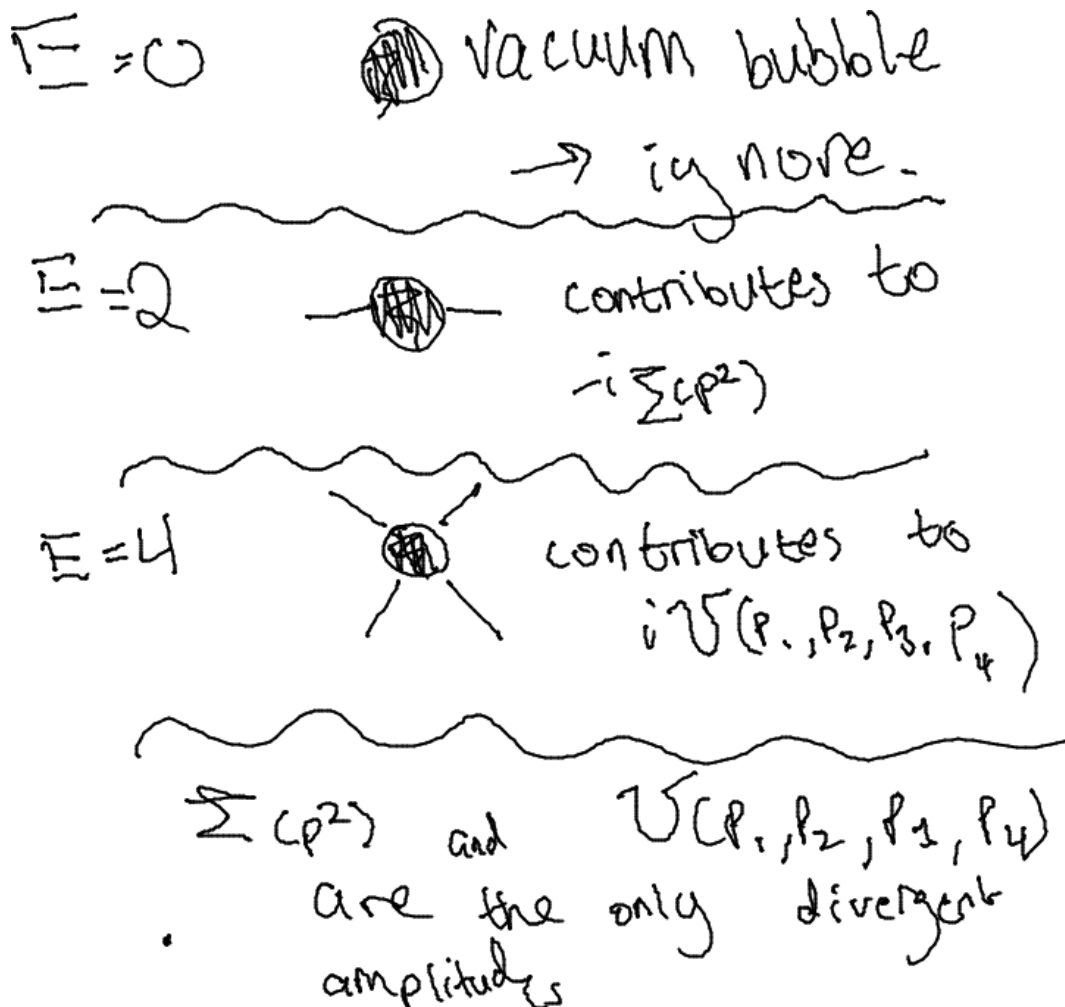 E = 0 vacuum bubble
→ ignore.
E = 2 contributes to
-i Σ(p²)
E = 4 contributes to
i V(P., P₂, P₃, P₄)
Σ(p²) and V(P., P₂, P₁, P₄)
are the only divergent
amplitudes